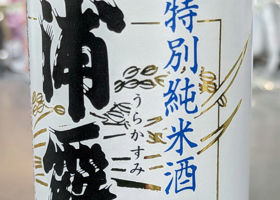 特別純米酒
浦霞
うらかすみ